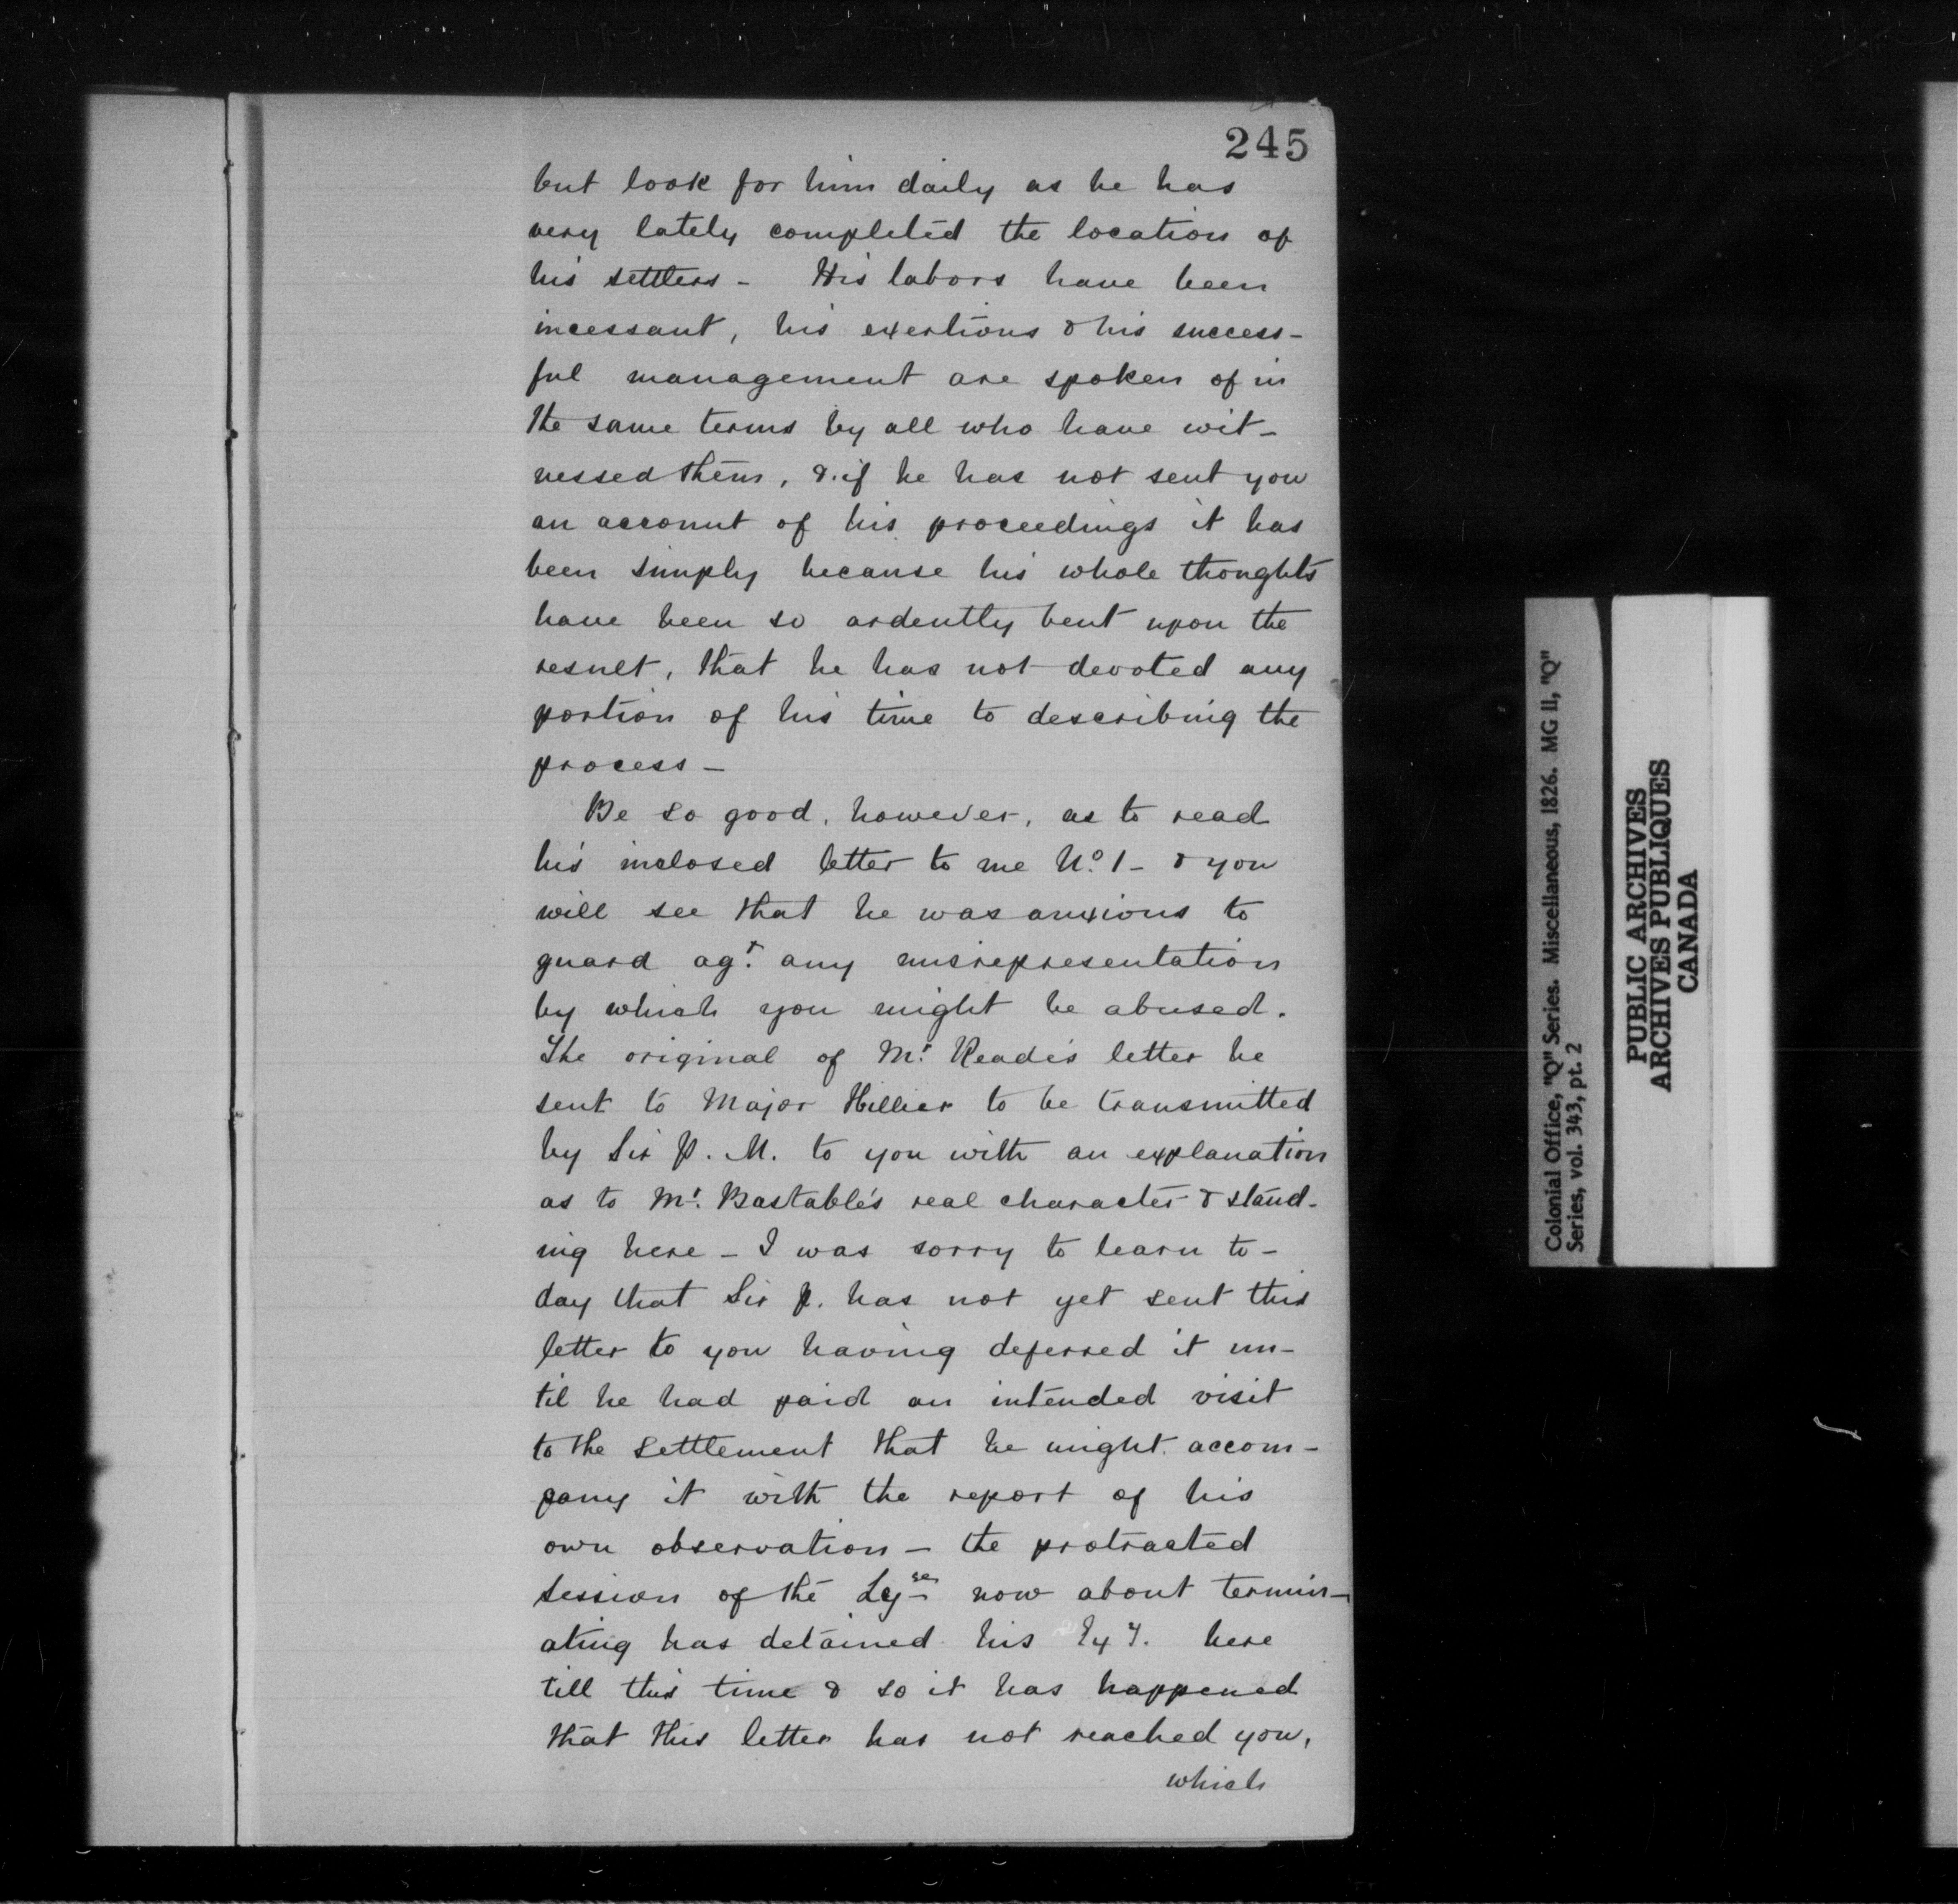 245
but look for him daily as he has
very lately completed the location of
his settlers - His labors have been
incessant, his exertions & his success-
ful management are spoken of in
the same terms by all who have wit-
nessed them, & if he has not sent you
an account of his proceedings it has
been simply because his whole thoughts
have been so ardently bent upon the
result, that he has not devoted any
portion of his time to describing the
process -
Be so good, however, as to read
his inclosed letter to me No. 1 - & you
will see that he was anxious to
guard agt. any misrepresentation
by which you might be abused.
The original of Mr. Reade's letter he
sent to Major Hillier to be transmitted
by Sir P. M. to you with an explanation
as to Mr. Bastable's real character & stand-
ing here - I was sorry to learn to-
day that Sir P. has not yet sent this
letter to you having deferred it un-
til he had paid an intended visit
to the settlement that he might accom-
pany it with the report of his
own observation - the protracted
session of the Legre now about termin-
ating has detained his Exy. here
till this time & so it has happened
that this letter has not reached you,
which
Colonial Office, "Q" Series. Miscellaneous, 1826. MG 11, "Q"
Series, vol. 343, pt. 2
PUBLIC ARCHIVES
ARCHIVES PUBLIQUES
CANADA